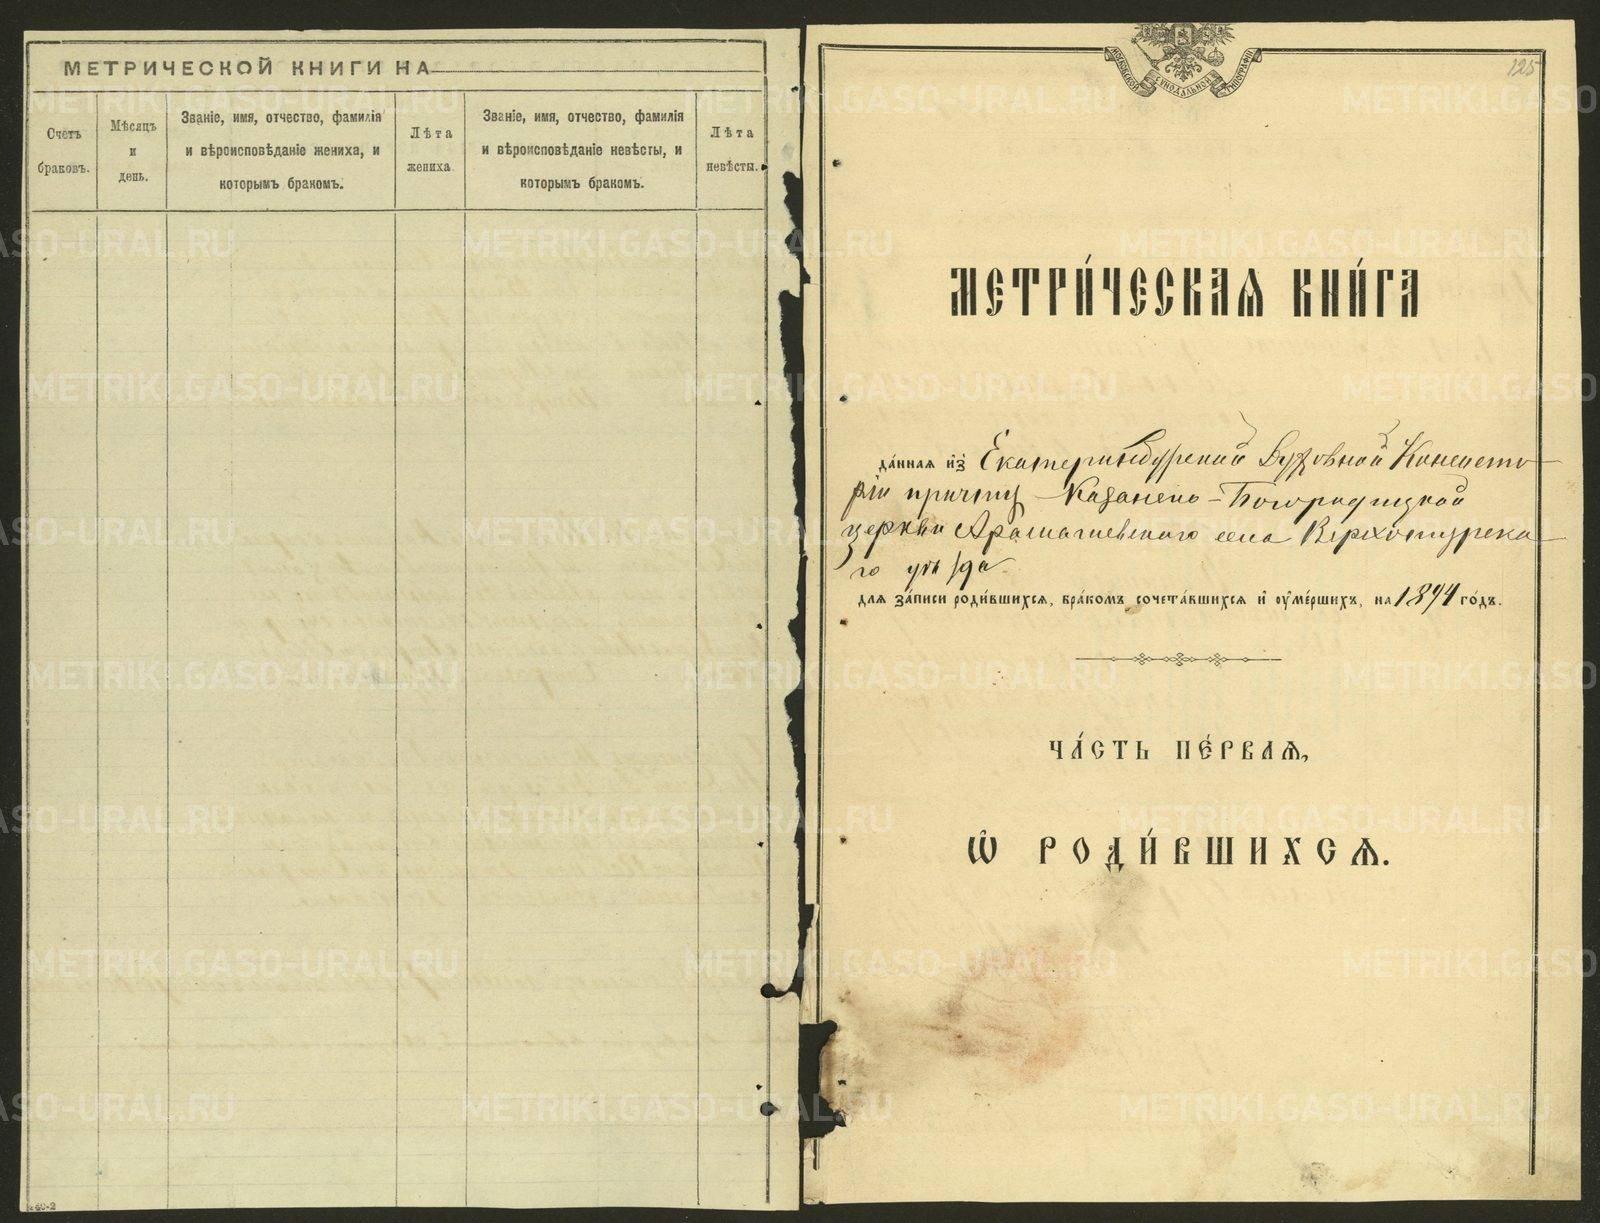 МЕТРИЧЕСКОЙ КНИГИ НА
Счетъ браковъ.
Мѣсяцъ и день.
Званіе, имя, отчество, фамилія и вѣроисповѣданіе жениха, и которымъ бракомъ.
Лѣта жениха.
Званіе, имя, отчество, фамилія и вѣроисповѣданіе невѣсты, и которымъ бракомъ.
Лѣта невѣсты.
МОСКОВСКОЙ СѴНОДАЛЬНОЙ ТИПОГРАФІИ
125
МЕТРИ́ЧЕСКАѦ КНИ́ГА
да́нная из̾ Екатеринбургской Духовной Консисто-
ріи причту Казанско-Богородицкой
церкви Арамашевского села Верхотурска-
го уѣзда
для за́писи роди́вшихся, бра́комъ сочета́вшихся и оуме́ршихъ, на 1894 го́дъ.
ЧА́СТЬ ПЕ́РВАѦ,
Ѽ РОДИ́ВШИХСѦ.
METRIKI.GASO-URAL.RU